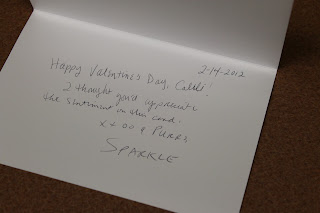 2-14-2012
Happy Valentine's Day,
I thought you'd appreciate
the sentiment in this card.
X + OO & Purrs,
SPARKLE